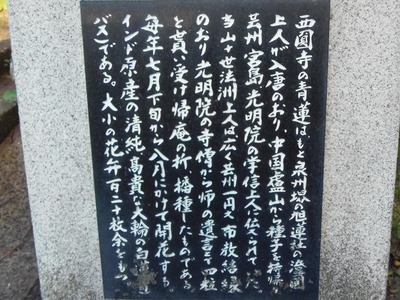 西圓寺の青蓮はもと泉州堺の旭蓮社の澄圓
上人が入唐のおり、中国盧山から種子を持帰り
芸州宮島光明院の学信上人に伝えられて
当山十世法洲上人は広く芸州一円え布教活
のおり光明院の寺僧から師の遺言とて四粒
を貰い受け帰庵の折、播種したものである
毎年七月下旬から八月にかけて開花する
インド原産の清純高貴な大輪の白
バスである。大小の花弁一百二十枚余をもつ